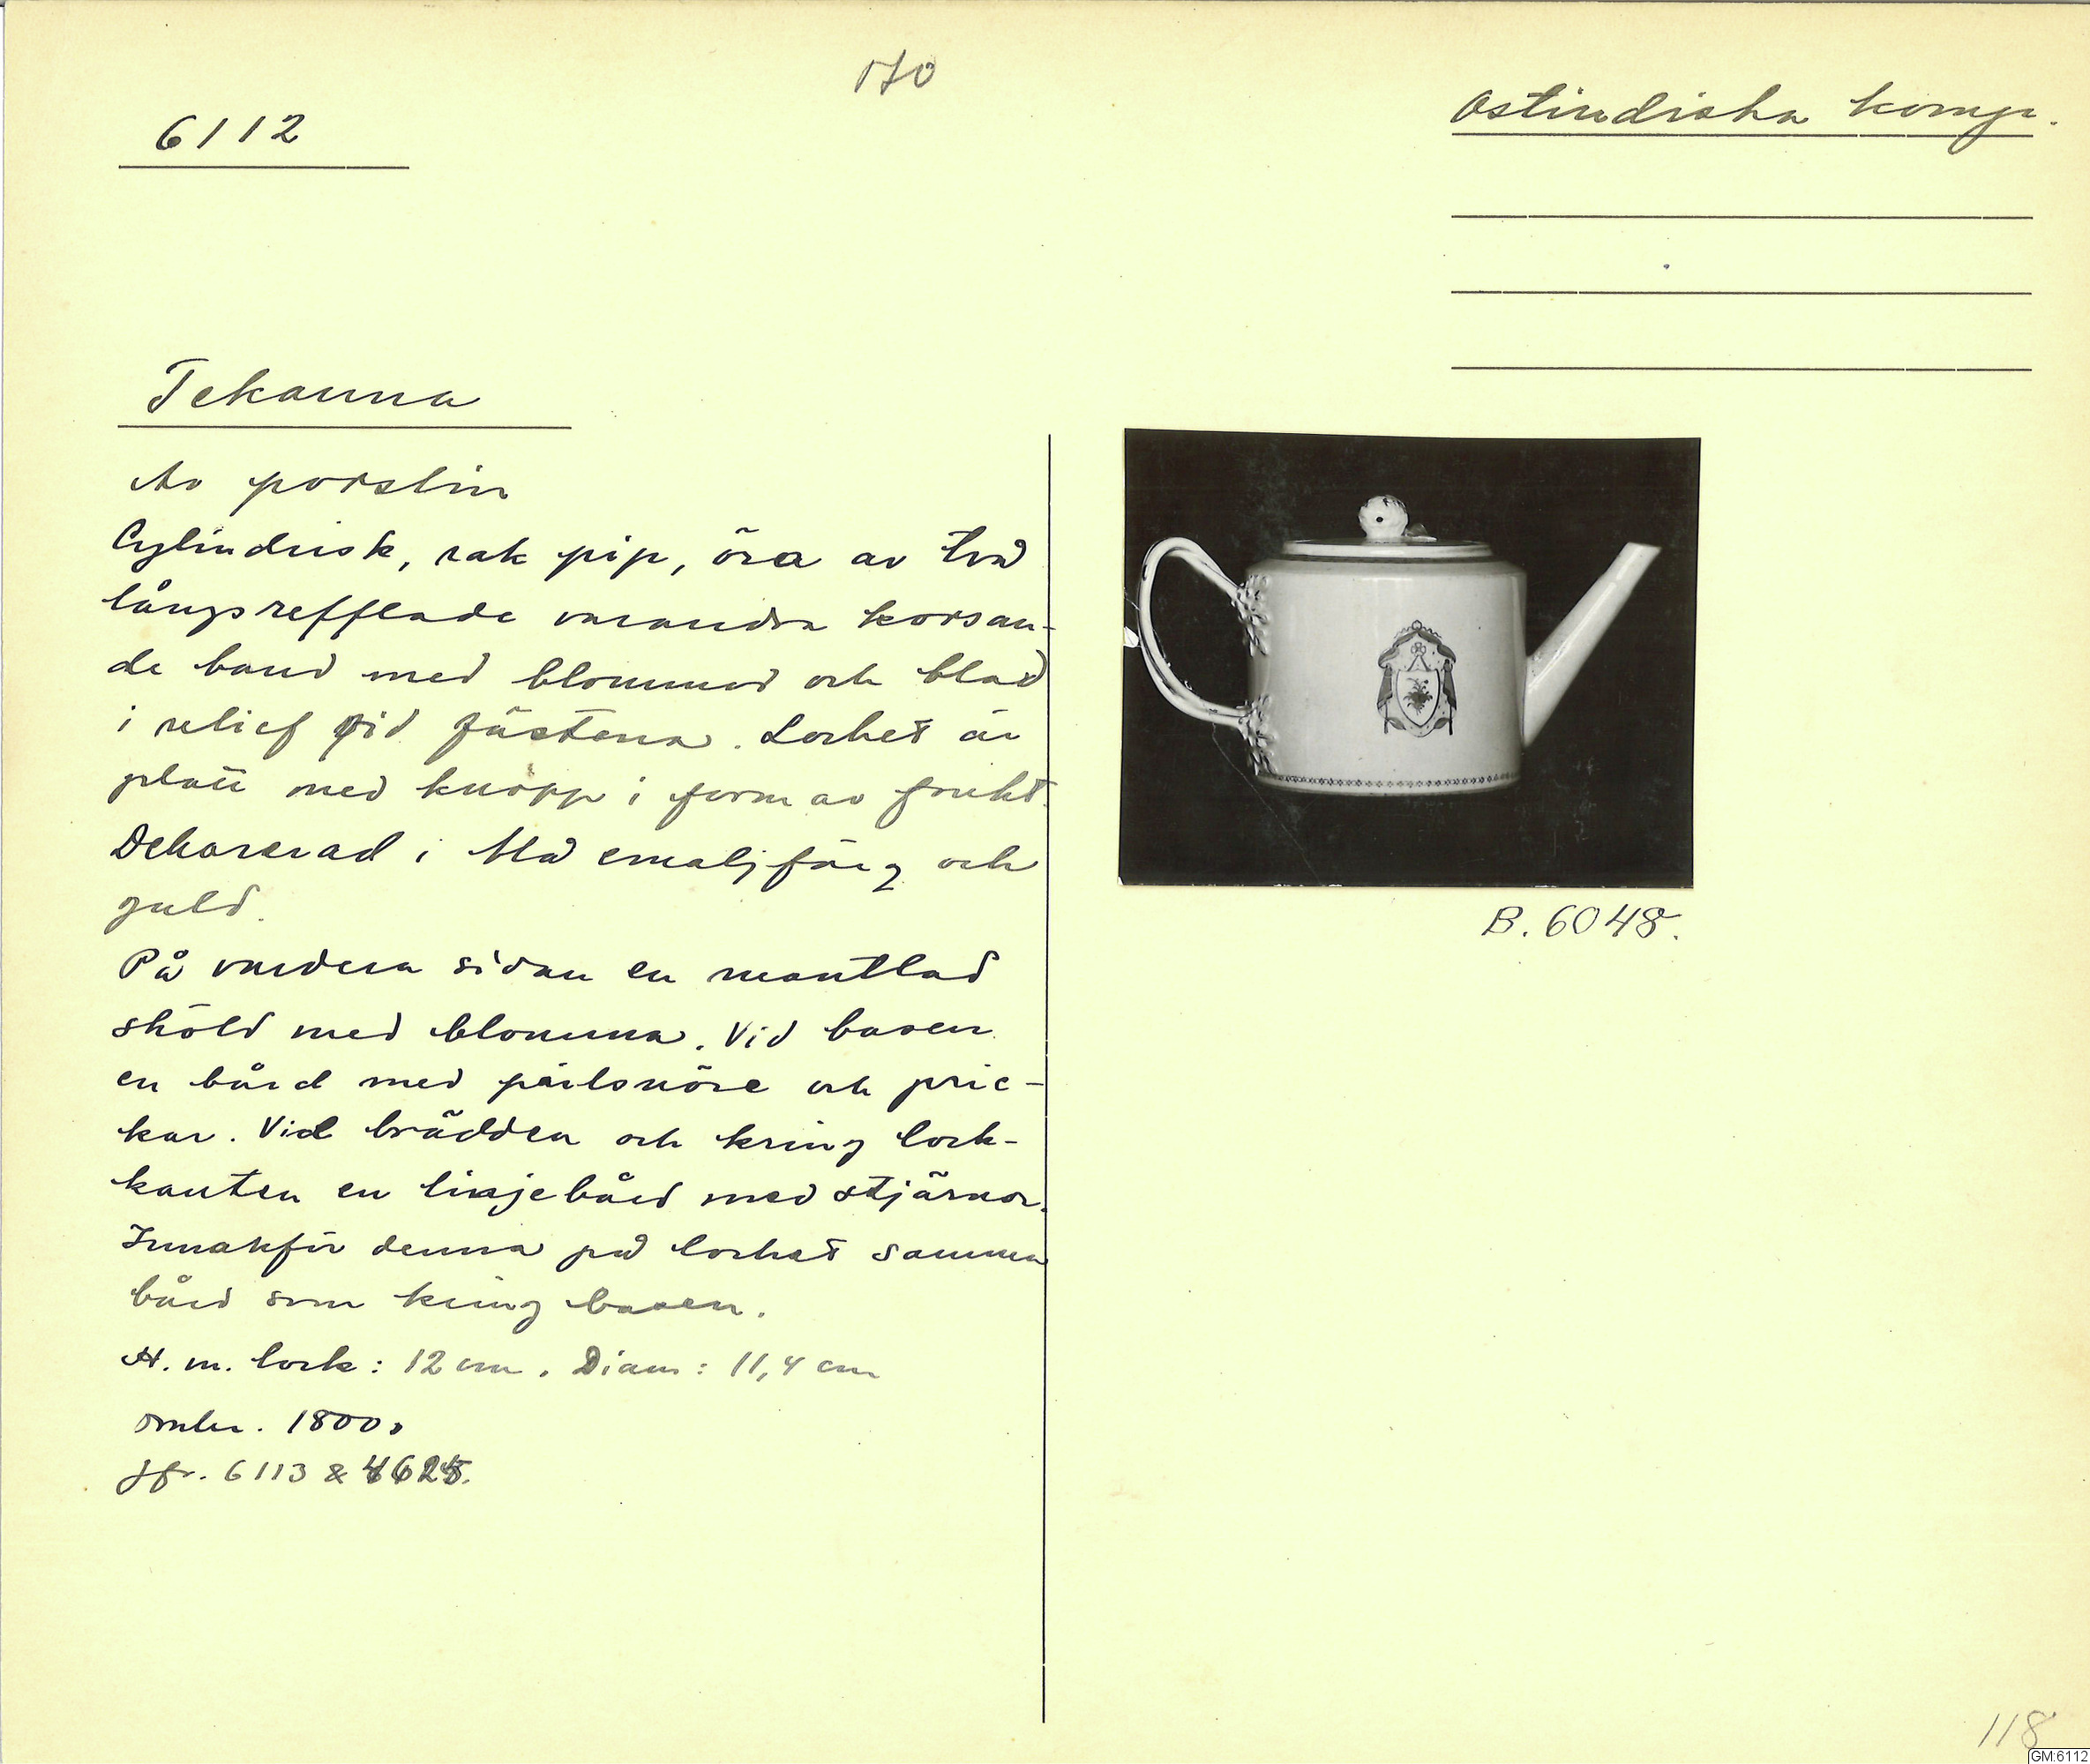 170
6112
Ostindiska komp.
Tekanna
Av porslin
Cylindrisk, rak pip, öra av två
långsrefflade varandra korsan-
de band med blommor och blad
i relief vid fästena. Locket är
platt med knopp i form av frukt.
Dekorerad i blå emaljfärg och
guld.
På vardera sidan en mantlad
sköld med blomma. Vid basen
en bård med pärlsnöre och pric-
kar. Vid brädden och kring lock-
kanten en linjebård med stjärnor.
Innanför denna på locket samma
bård som kring basen.
H. m. lock: 12 cm. Diam: 11,4 cm
omkr. 1800.
Jfr. 6113 &
B. 6048.
118
GM:6112